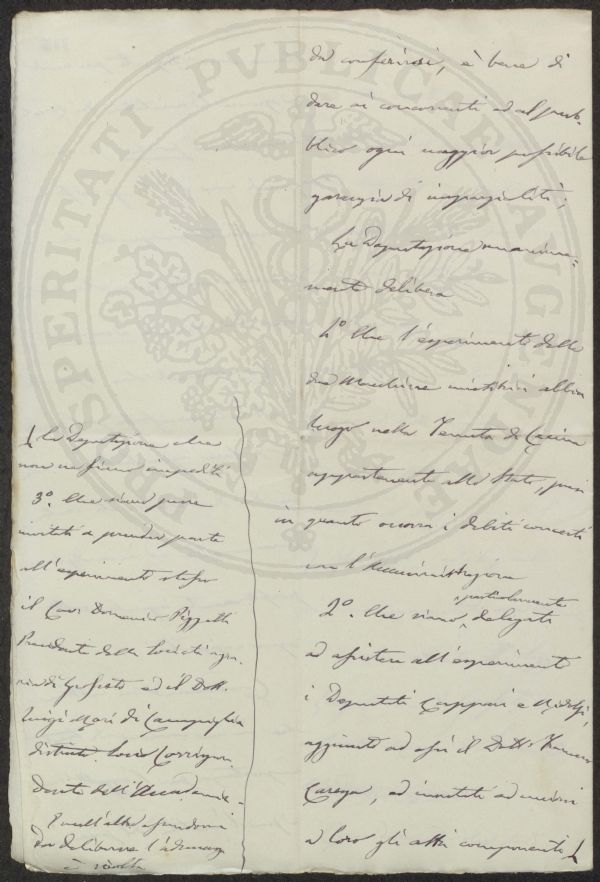 da conferirsi, è bene di
dare ai concorrenti ed al pub-
blico ogni maggior possibile
garanzia di imparzialità;
La Deputazione unanime-
mente delibera
1.º Che l'esperimento delle
due Macchine mietitrici abbia
luogo nella Tenuta di
appartenente allo Stato, presi
in quanto occorra i debiti concerti
con l'Amministrazione
2.º Che siano particolarmente delegati
ad assistere all'esperimento
i Deputati Capponi e Ridolfi,
aggiunto ad essi il Dott.
Carega, ed invitati ad unirsi
a loro gli altri componenti
la Deputazione che
non ne siano impediti
3.º Che siano pure
invitati a prender parte
all'esperimento stesso
il Cav. Domenico Pizzetti
Presidente della Società agra-
ria di Grosseto ed il Dott.
Luigi Mori di Campiglia
distinto Socio Corrispon-
dente dell'Accademia.
Null'altro essendovi
da deliberare l'adunanza
è sciolta
PROSPERITATI PVBLICAE AVGENDAE